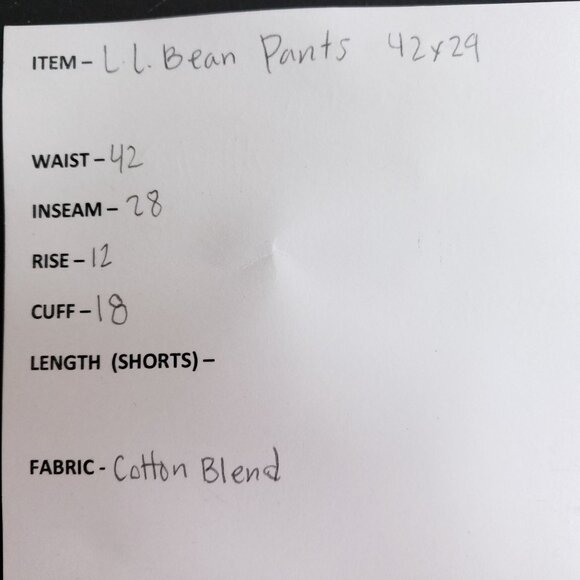 ITEM – L.L. Bean Pants 42x29
WAIST – 42
INSEAM – 28
RISE – 12
CUFF – 18
LENGTH (SHORTS) –
FABRIC - Cotton Blend